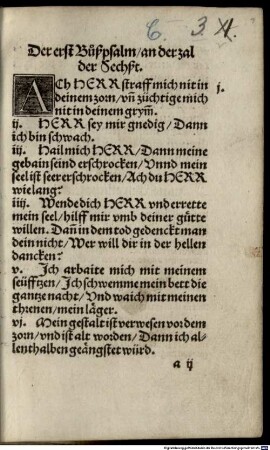 6. 3. XI.
Der erst Büßpsalm/an der zal
der Sechßt.
ACh HERR straff mich nit in
deinem zorn/vñ züchtige mich
nit in deinem grym̃.
j.
ij. HERR sey mir gnedig/Dann
ich bin schwach.
iij. Hail mich HERR/Dann meine
gebain seind erschrocken/Unnd mein
seel ist seer erschrocken/Ach du HERR
wie lang?
iiij. Wende dich HERR vnd errette
mein seel/hilff mir vmb deiner gütte
willen. Dañ in dem tod gedenckt man
dein nicht/Wer will dir in der hellen
dancken?
v. Ich arbaite mich mit meinem
seüfftzen/Ich schwemme mein bett die
gantze nacht/Vnd waich mit meinen
threnen/mein läger.
vj. Mein gestalt ist verwesen vor dem
zorn/vnd ist alt worden/Dann ich al-
lenthalben geängstet würd.
a ij